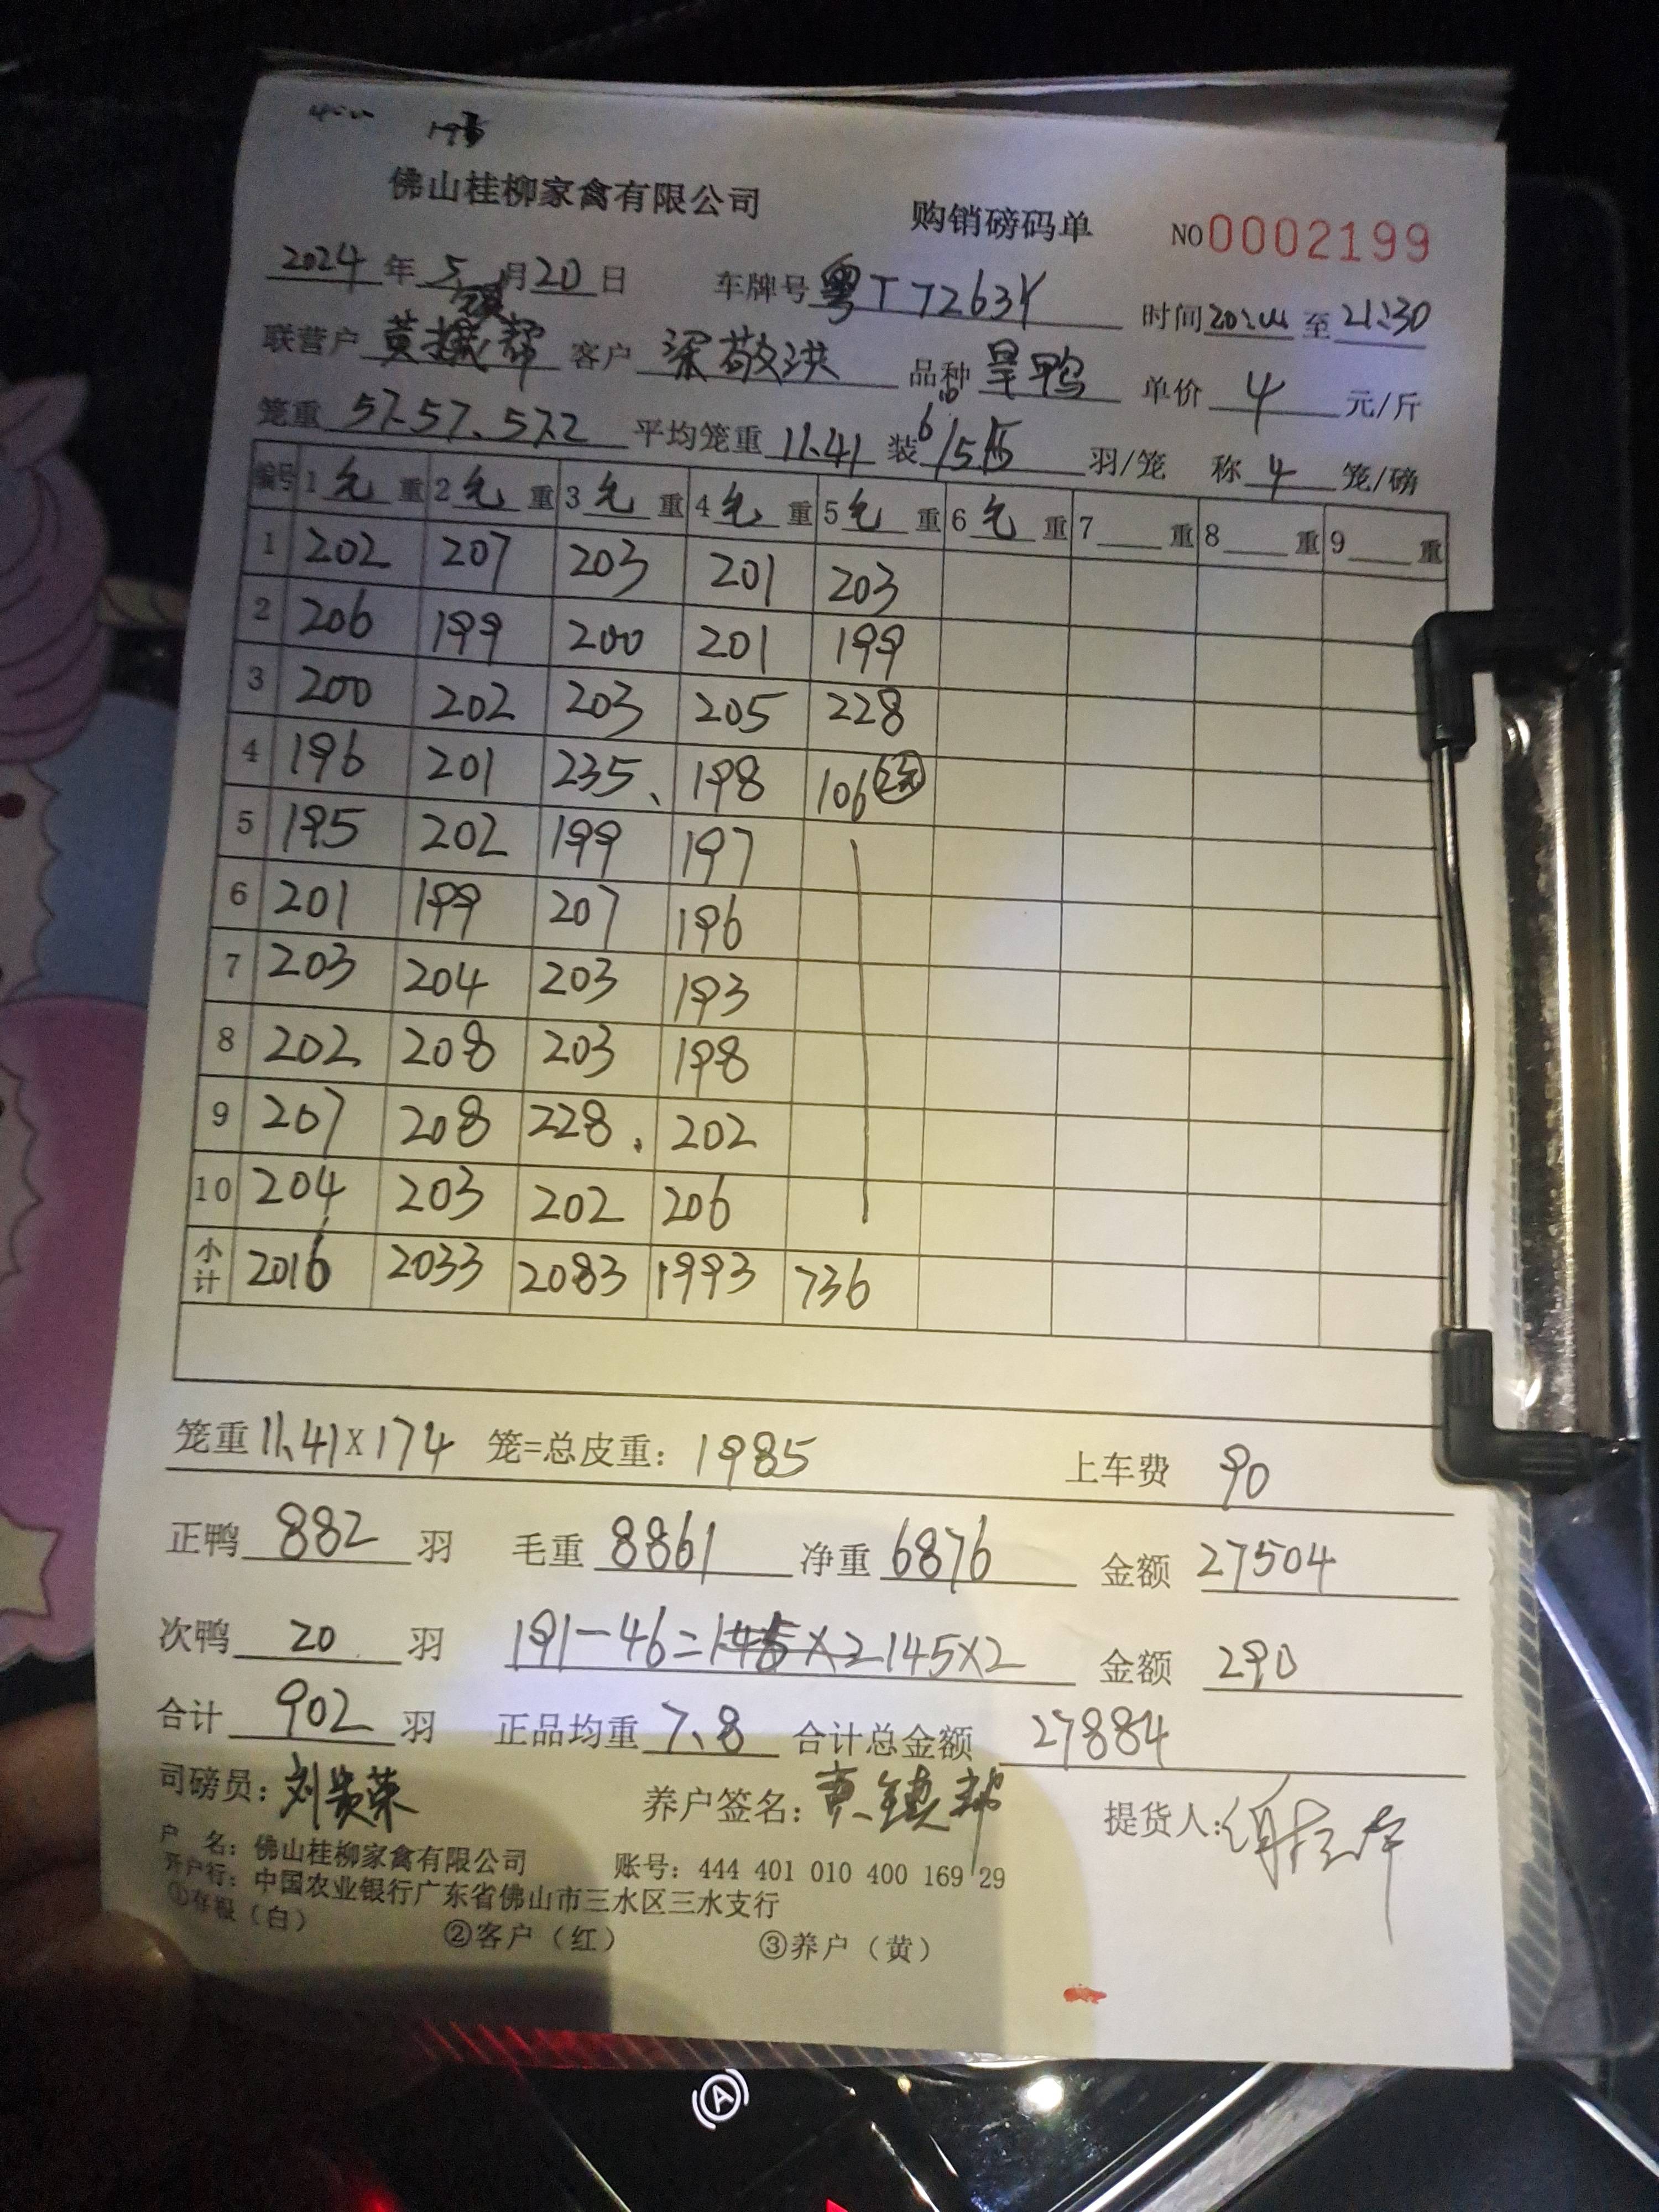 195
佛山桂柳家禽有限公司 购销磅码单 NO 0002199
2024 年 5 月 20 日 车牌号 粤T7263Y 时间 20:44 至 21:30
联营户 黄镇帮 客户 梁敬洪 品种 旱鸭 单价 4 元/斤
笼重 57.57、57.2 平均笼重 11.41 装 羽/笼 称 4 笼/磅
编号 1 毛 重 2 毛 重 3 毛 重 4 毛 重 5 毛 重 6 毛 重 7 重 8 重 9 重
1 202 207 203 201 203
2 206 199 200 201 199
3 200 202 203 205 228
4 196 201 235、 198 106
5 195 202 199 197
6 201 199 207 196
7 203 204 203 193
8 202 208 203 198
9 207 208 228、 202
10 204 203 202 206
小计 2016 2033 2083 1993 736
笼重 11.41×174 笼=总皮重: 1985 上车费 90
正鸭 882 羽 毛重 8861 净重 6876 金额 27504
次鸭 20 羽 191-46=145×2 145×2 金额 290
合计 902 羽 正品均重 7.8 合计总金额 27884
司磅员: 刘 荣 养户签名: 黄镇帮 提货人:
户 名: 佛山桂柳家禽有限公司 账号: 444 401 010 400 169 29
开户行: 中国农业银行广东省佛山市三水区三水支行
①存根（白） ②客户（红） ③养户（黄）
A